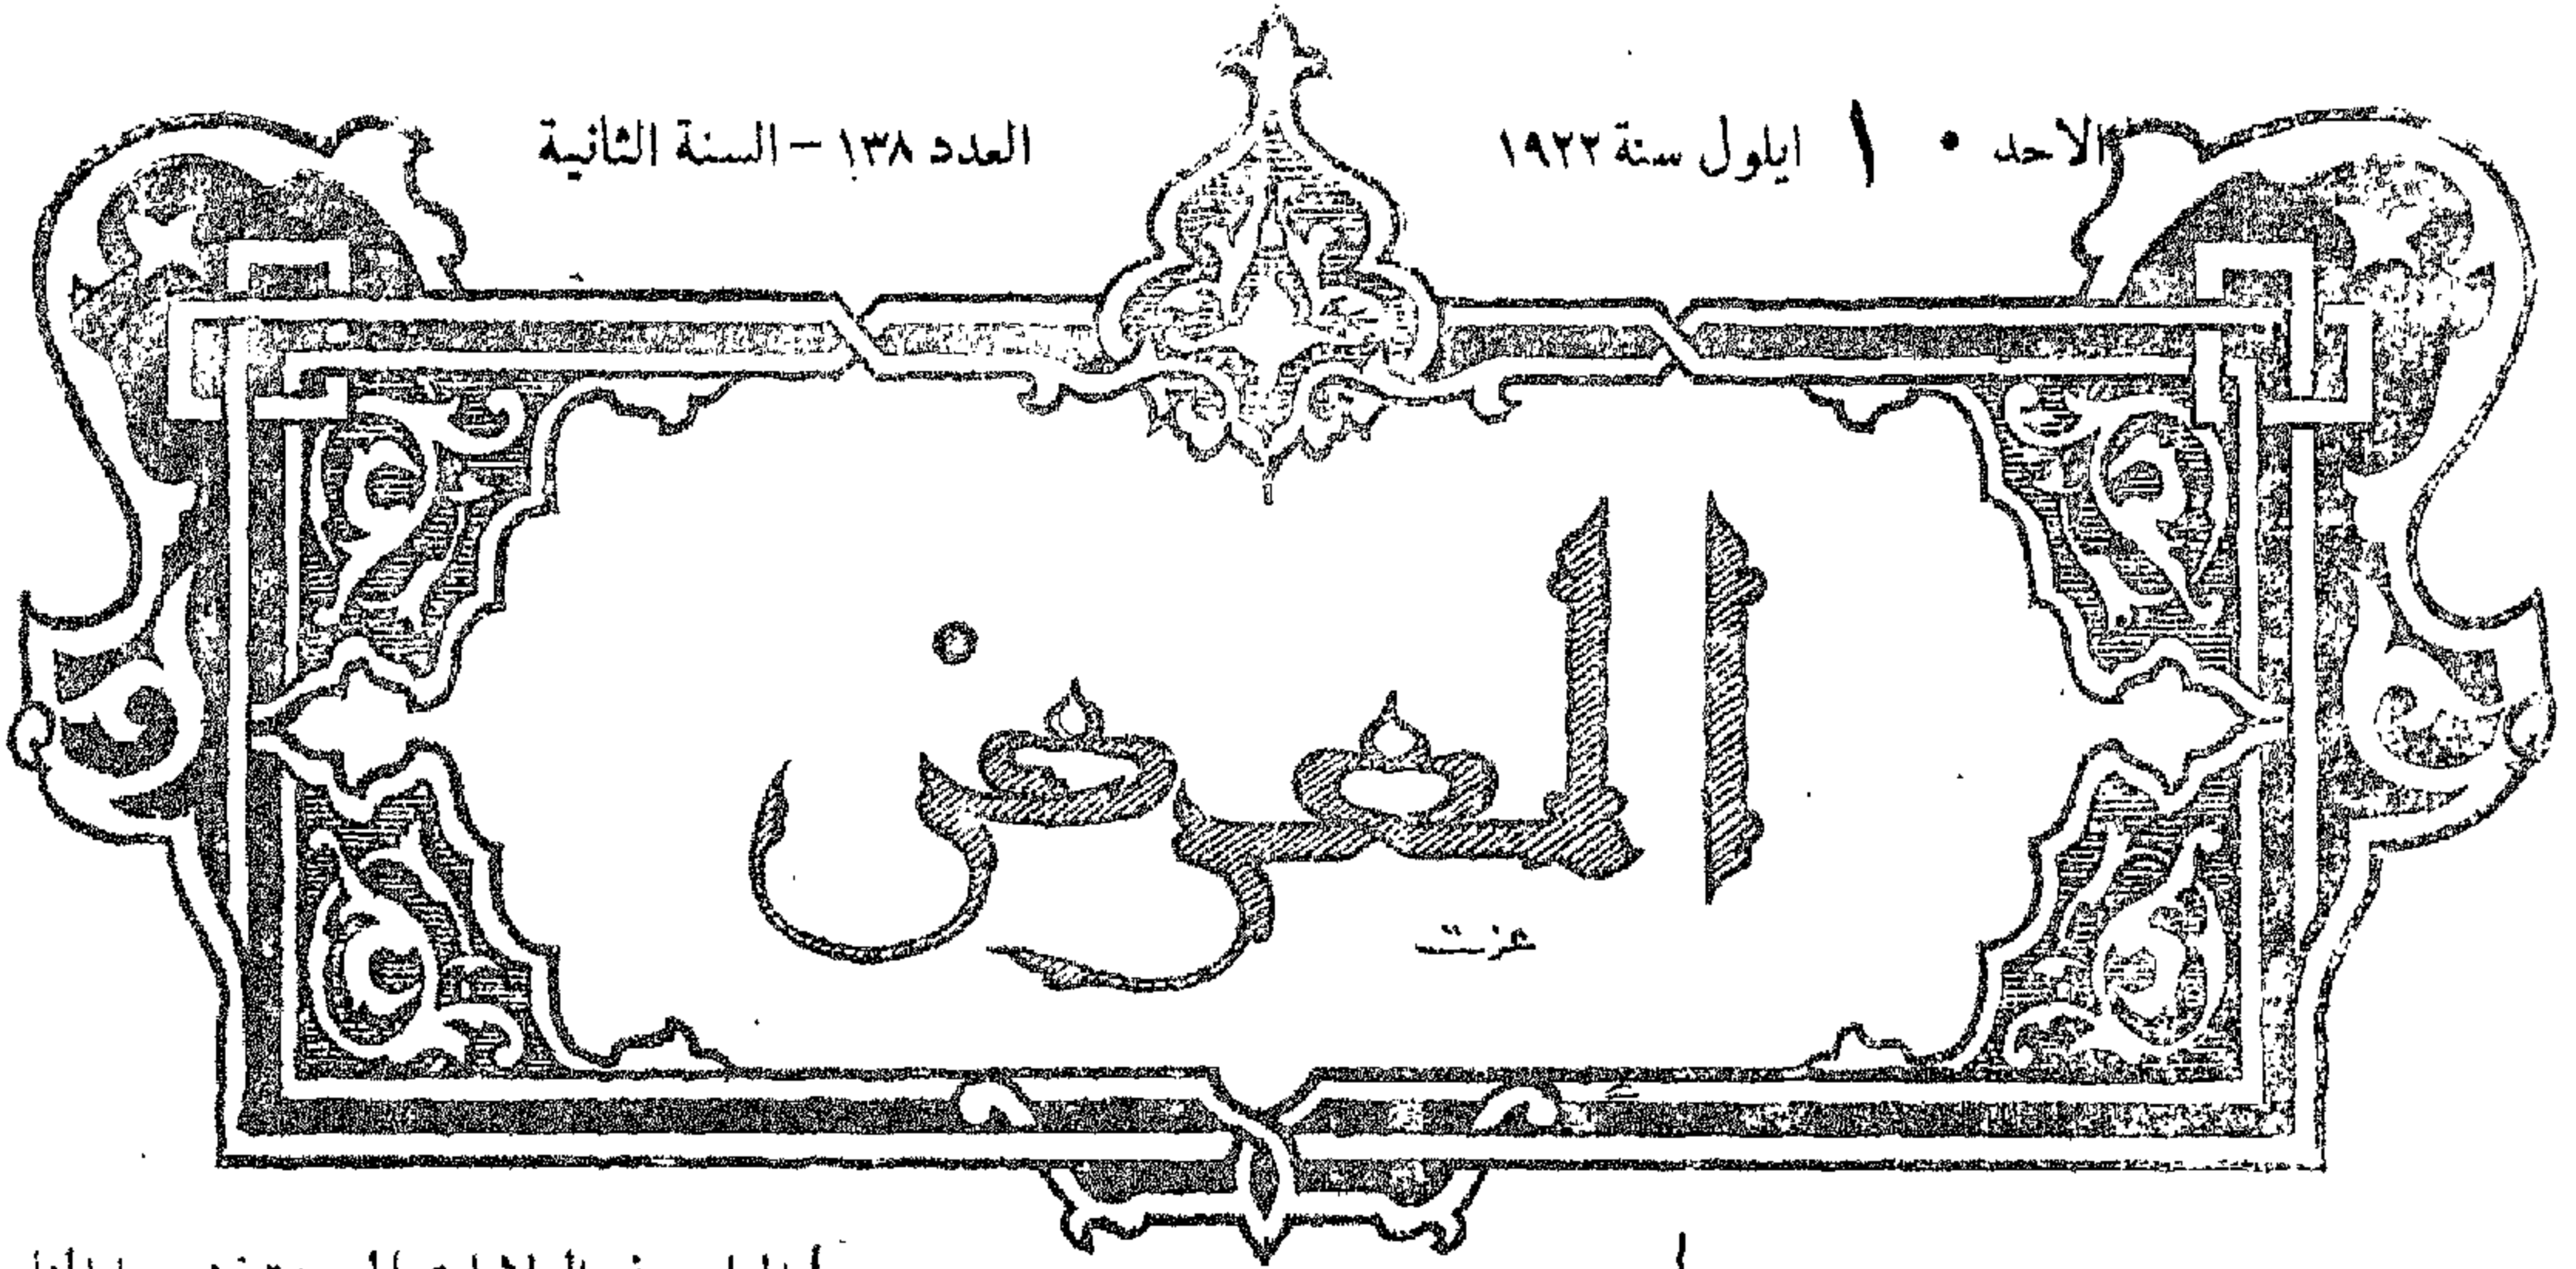 الاحد ١٠ ايلول سنة ١٩٢٢
العدد ١٣٨ – السنة الثانية
المعرض
عزت